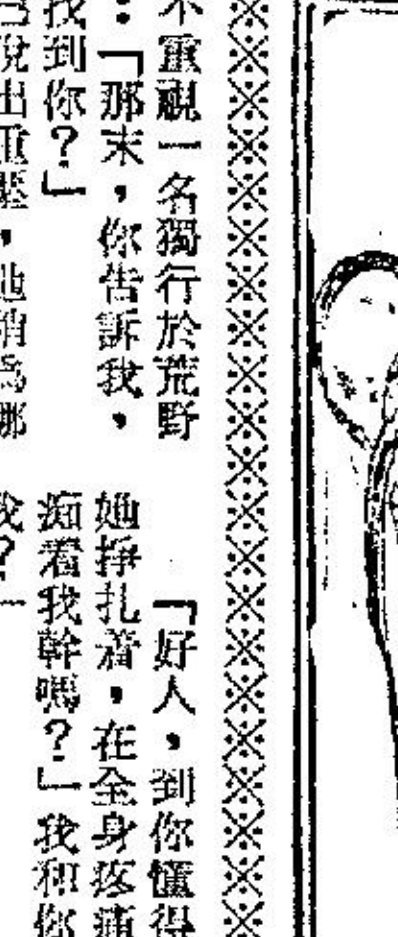 不重視一名獨行於荒野
：「那末，你告訴我，
找到你？」
說出重壓，她稍為挪
「好人，到你懂得
她掙扎着，在全身疼痛
痴看我幹嗎？」我和你
我？」